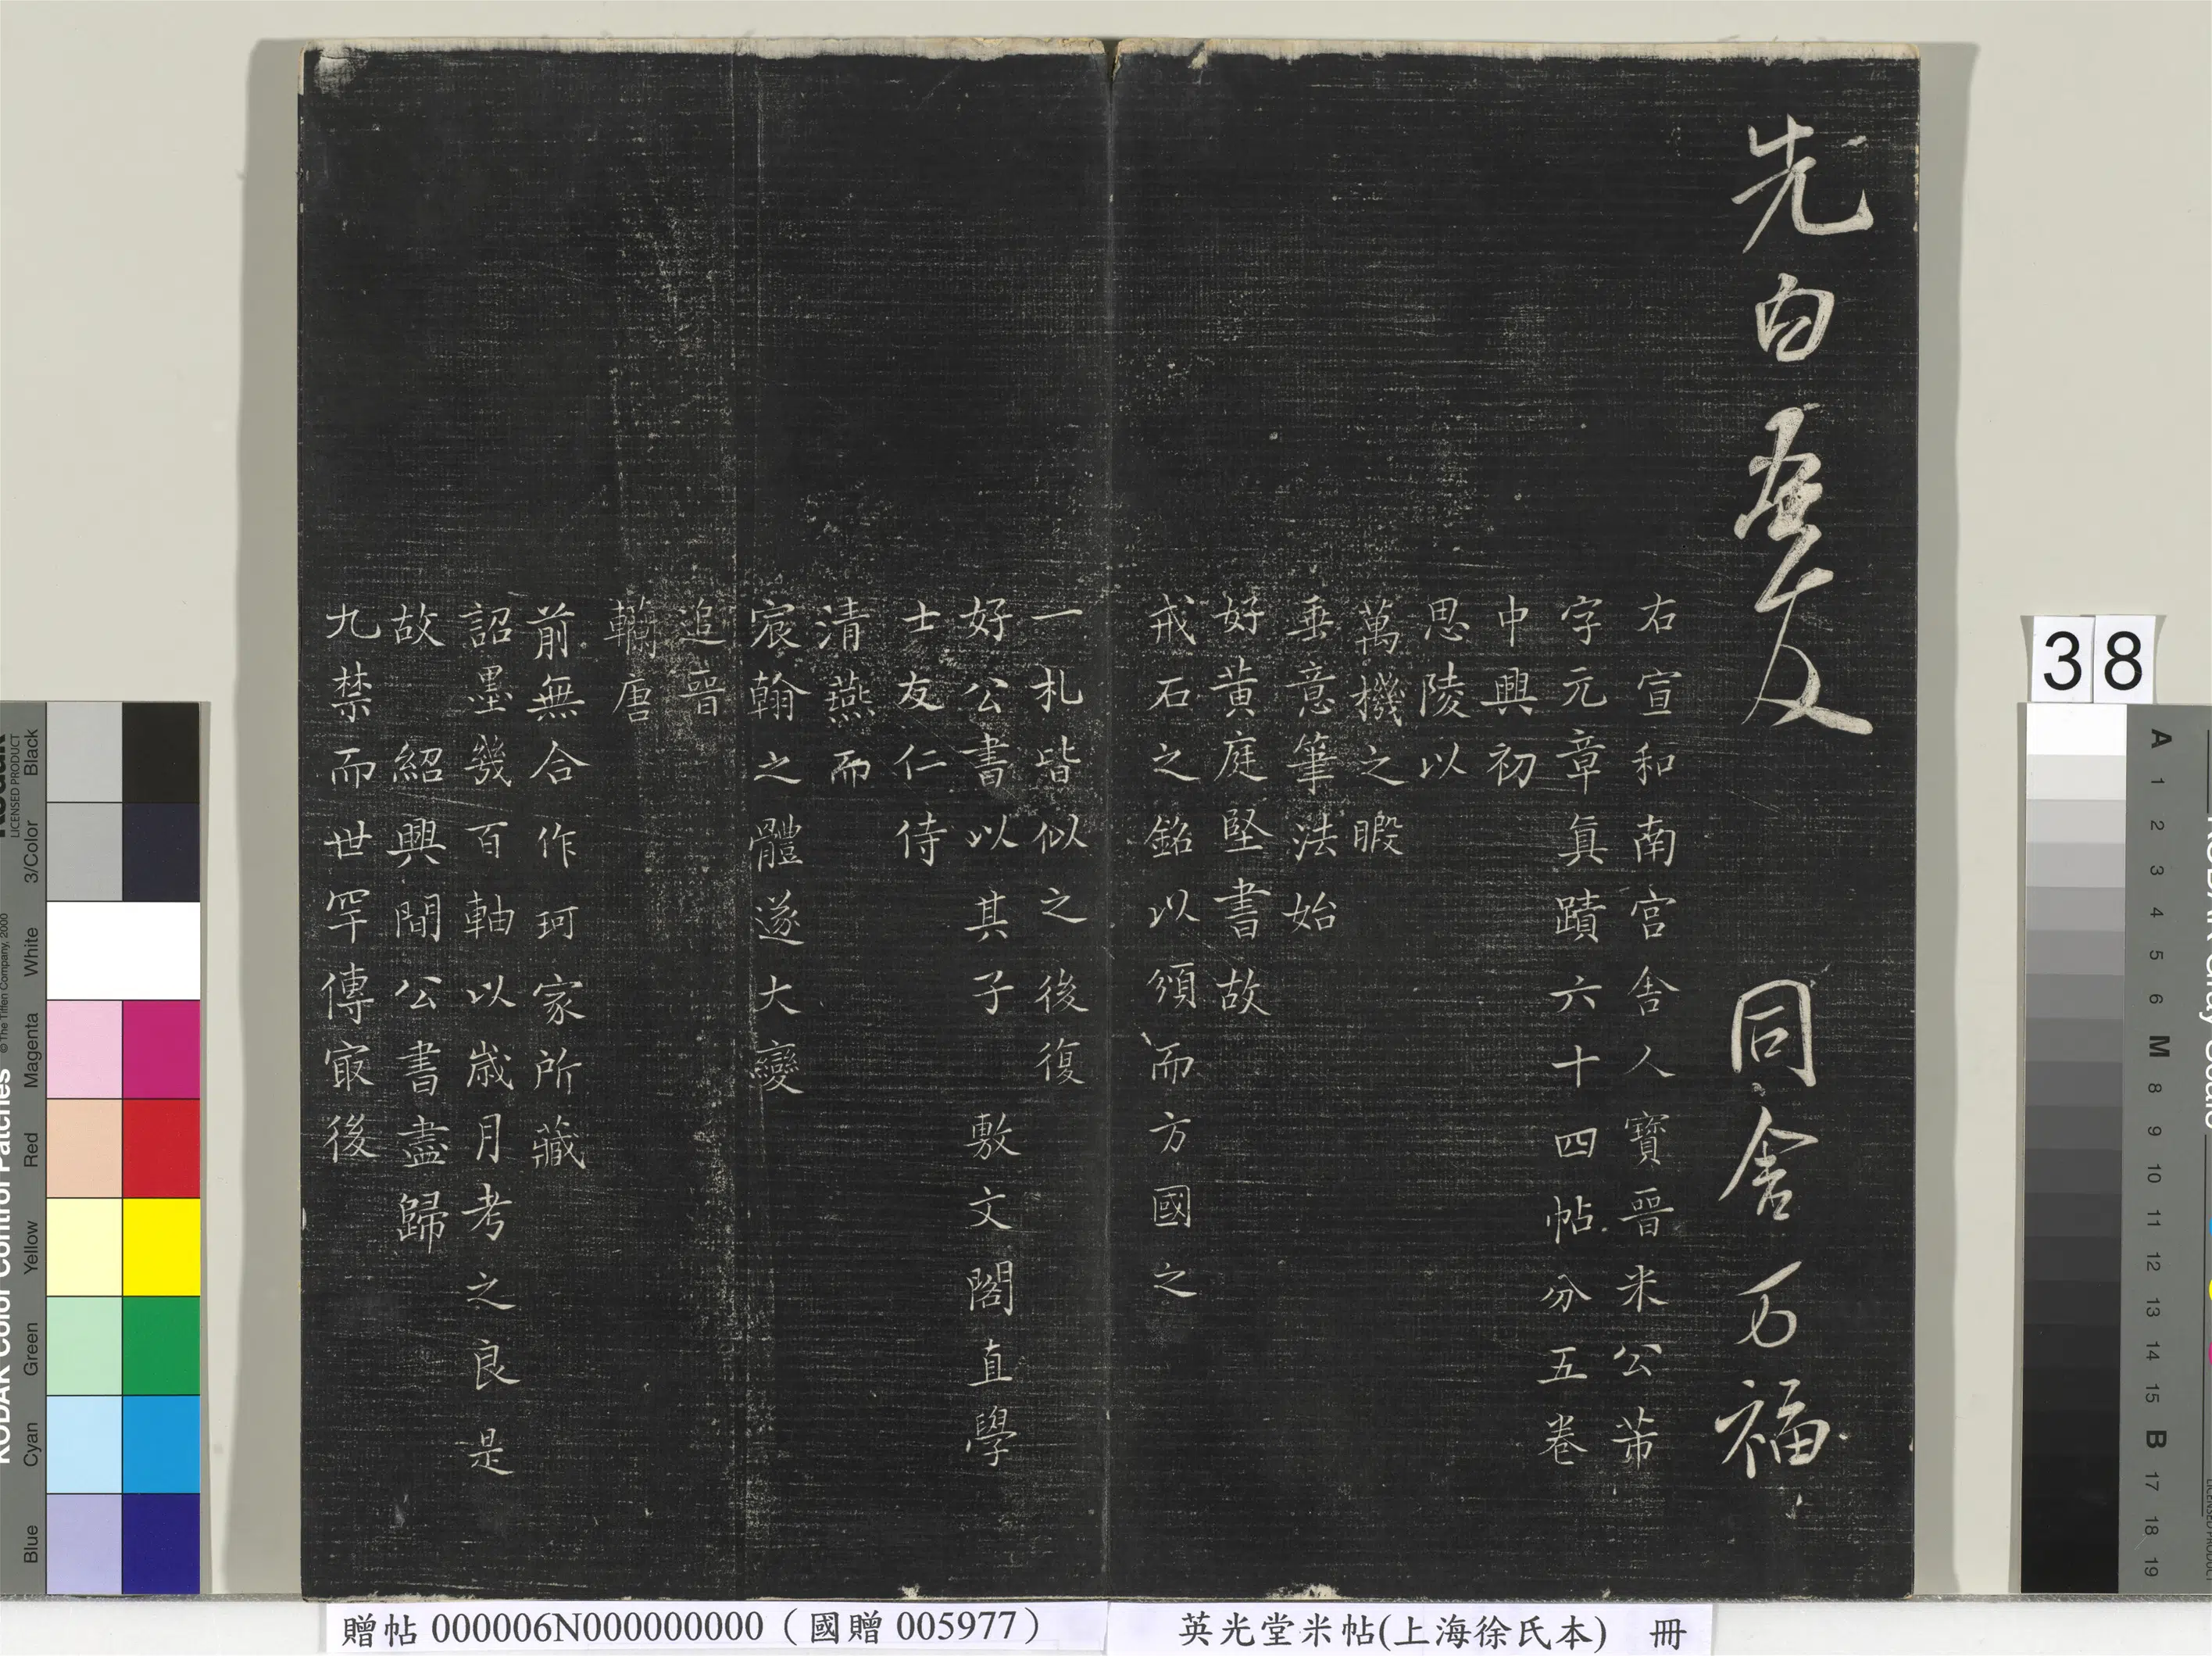 先白 吾友 同舍万福
右宣和南宮舍人寶晉米公芾
字元章真蹟六十四帖分五卷
中興初
思陵以
萬機之暇
垂意筆法始
好黃庭堅書故
戒石之銘以頒而方國之
一札皆似之後復
好公書以其子敷文閣直學
士友仁侍
清燕而
宸翰之體遂大變
追晉
轥唐
前無合作珂家所藏
詔墨幾百軸以歲月考之良是
故紹興間公書盡歸
九禁而世罕傳冣後
38
贈帖 000006N000000000（國贈 005977）
英光堂米帖(上海徐氏本) 冊
KODAK Color Control Patches
© The Tiffen Company, 2000
Kodak
LICENSED PRODUCT
Blue
Cyan
Green
Yellow
Red
Magenta
White
3/Color
Black
A 1 2 3 4 5 6 M 8 9 10 11 12 13 14 15 B 17 18 19